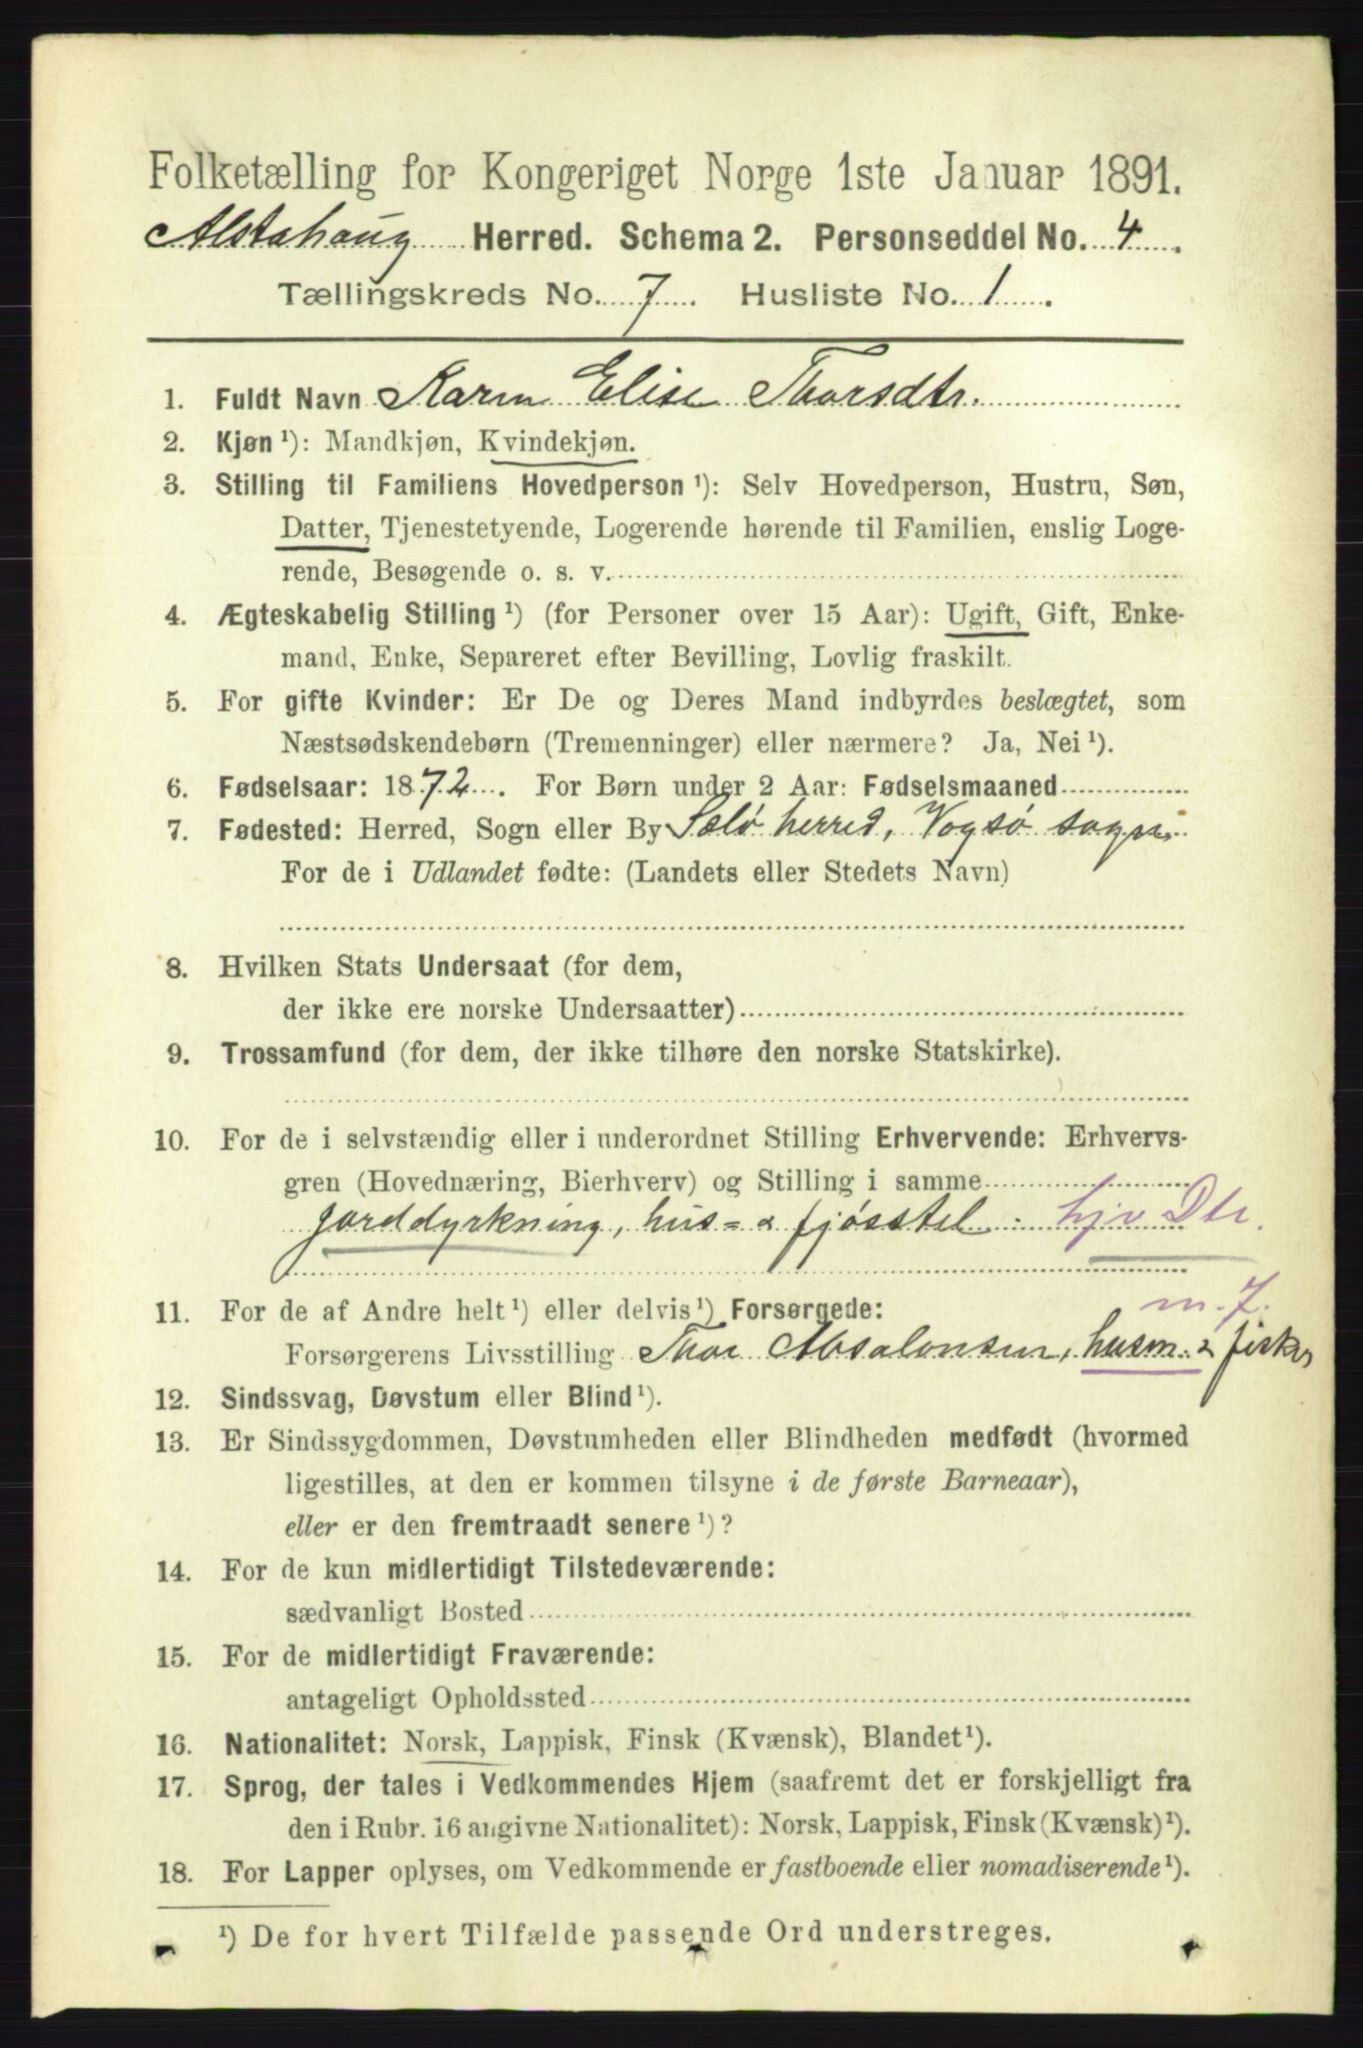 Folketælling for Kongeriget Norge 1ste Januar 1891.
Alstahaug Herred. Schema 2. Personseddel No. 4.
Tællingskreds No. 7. Husliste No. 1.
1. Fuldt Navn Karen Elise Thorsdtr.
2. Kjøn ¹): Mandkjøn, Kvindekjøn.
3. Stilling til Familiens Hovedperson ¹): Selv Hovedperson, Hustru, Søn,
Datter, Tjenestetyende, Logerende hørende til Familien, enslig Loge-
rende, Besøgende o. s. v.
4. Ægteskabelig Stilling ¹) (for Personer over 15 Aar): Ugift, Gift, Enke-
mand, Enke, Separeret efter Bevilling, Lovlig fraskilt.
5. For gifte Kvinder: Er De og Deres Mand indbyrdes beslægtet, som
Næstsødskendebørn (Tremenninger) eller nærmere? Ja, Nei ¹).
6. Fødselsaar: 1872. For Børn under 2 Aar: Fødselsmaaned
7. Fødested: Herred, Sogn eller By Sælø herred, Vogsø sogn.
For de i Udlandet fødte: (Landets eller Stedets Navn)
8. Hvilken Stats Undersaat (for dem,
der ikke ere norske Undersaatter)
9. Trossamfund (for dem, der ikke tilhøre den norske Statskirke).
10. For de i selvstændig eller i underordnet Stilling Erhvervende: Erhvervs-
gren (Hovednæring, Bierhverv) og Stilling i samme
jorddyrkning, hus- & fjøsstel. hjv Dtr.
11. For de af Andre helt ¹) eller delvis ¹) Forsørgede: m. 7.
Forsørgerens Livsstilling Thor Absalonsen, husm. & fisker
12. Sindssvag, Døvstum eller Blind ¹).
13. Er Sindssygdommen, Døvstumheden eller Blindheden medfødt (hvormed
ligestilles, at den er kommen tilsyne i de første Barneaar),
eller er den fremtraadt senere ¹)?
14. For de kun midlertidigt Tilstedeværende:
sædvanligt Bosted
15. For de midlertidigt Fraværende:
antageligt Opholdssted
16. Nationalitet: Norsk, Lappisk, Finsk (Kvænsk), Blandet ¹).
17. Sprog, der tales i Vedkommendes Hjem (saafremt det er forskjelligt fra
den i Rubr. 16 angivne Nationalitet): Norsk, Lappisk, Finsk (Kvænsk) ¹).
18. For Lapper oplyses, om Vedkommende er fastboende eller nomadiserende ¹).
¹) De for hvert Tilfælde passende Ord understreges.